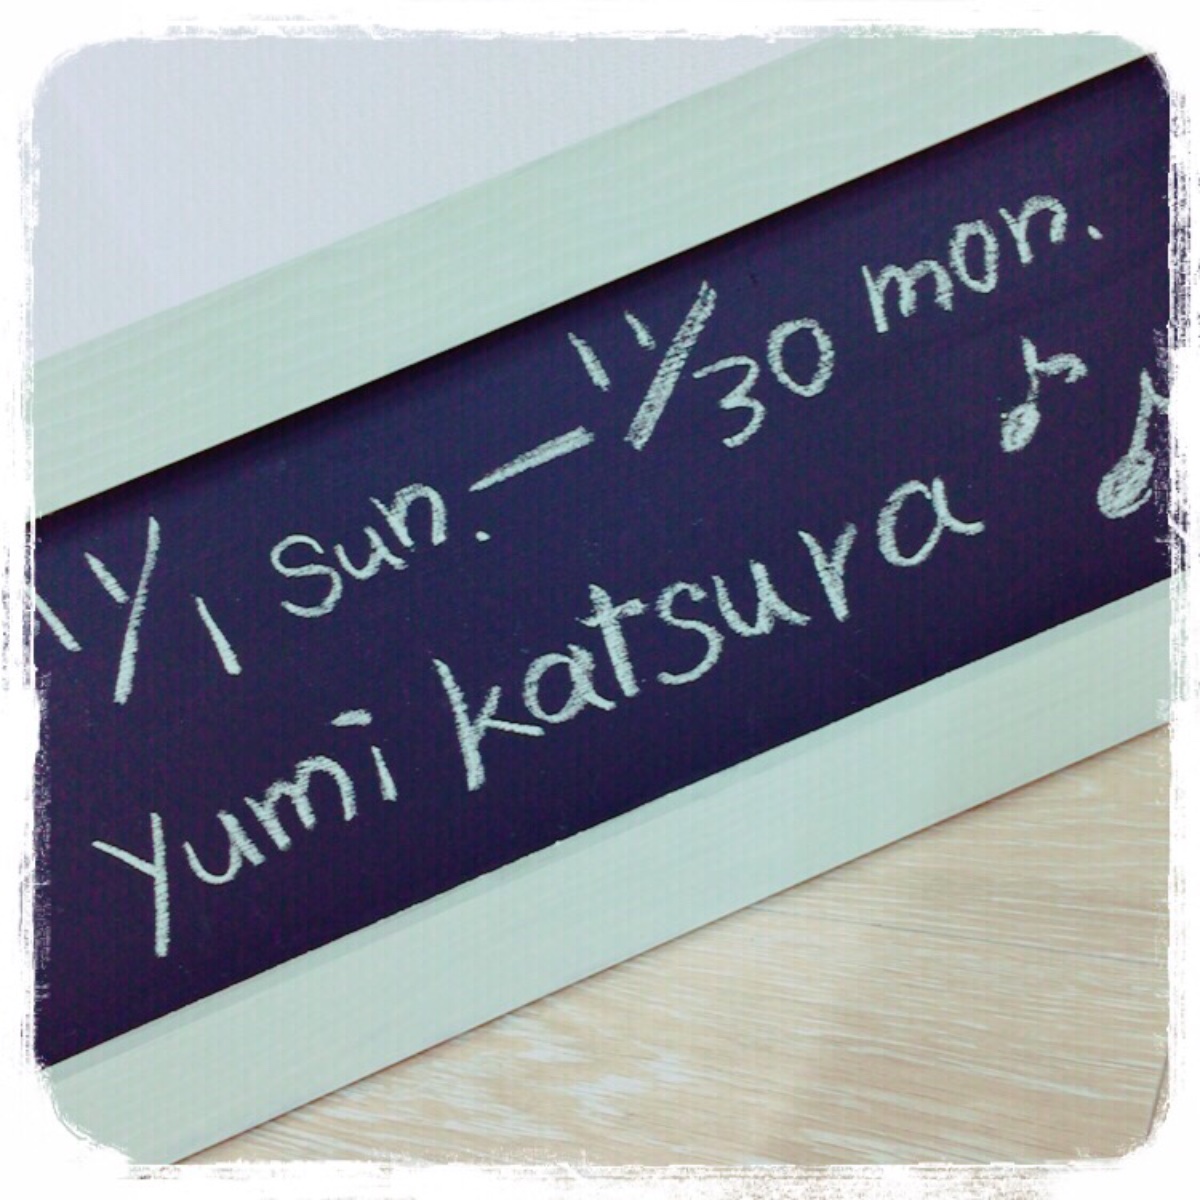 11/1 sun. - 11/30 mon.
Yumi katsura ♪ ♪